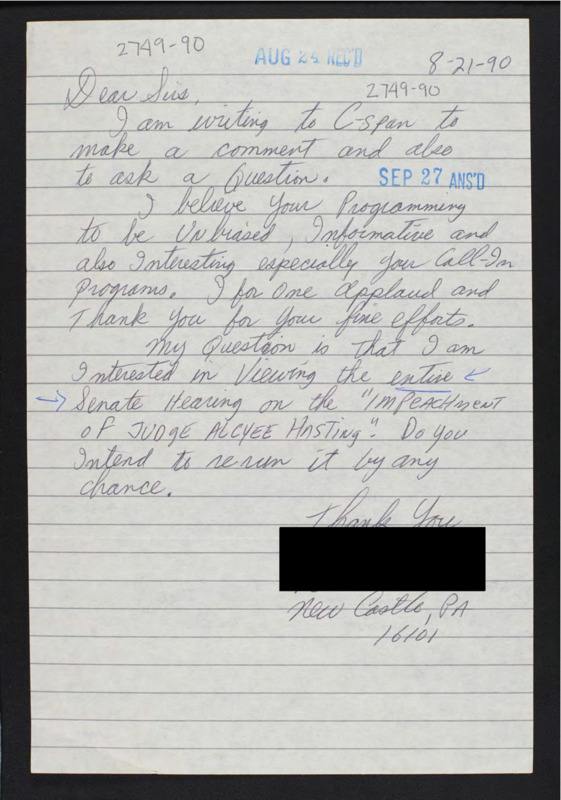 2749-90
AUG 24 REC'D
8-21-90
Dear Sirs,
2749-90
I am writing to C-span to
make a comment and also
to ask a Question.
SEP 27 ANS'D
I believe Your Programming
to be Unbiased, Informative and
also Interesting especially your Call-In
Programs. I for one applaud and
Thank You for your fine efforts.
My Question is that I am
Interested in Viewing the entire
Senate Hearing on the "IMPEACHMENT
OF JUDGE ALCYEE HASTING". Do you
Intend to re-run it by any
chance.
Thank You
New Castle, PA
16101